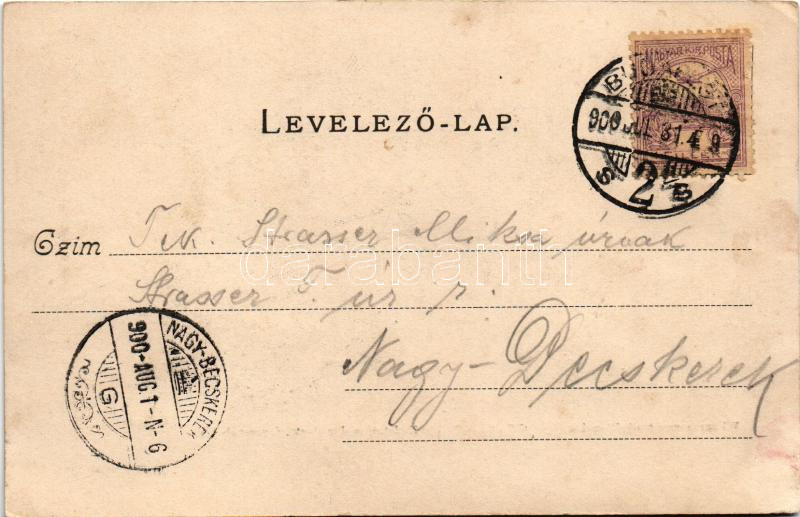 MAGYAR KIR. POSTA
BUDAPEST
900 JUL 31. 4
2
S B
LEVELEZŐ-LAP.
Czim Tek. Strasser Miksa úrnak
Strasser F. úr r.
darabanth
Nagy-Becskerek
NAGY-BECSKEREK
900-AUG. 1-N-6
G